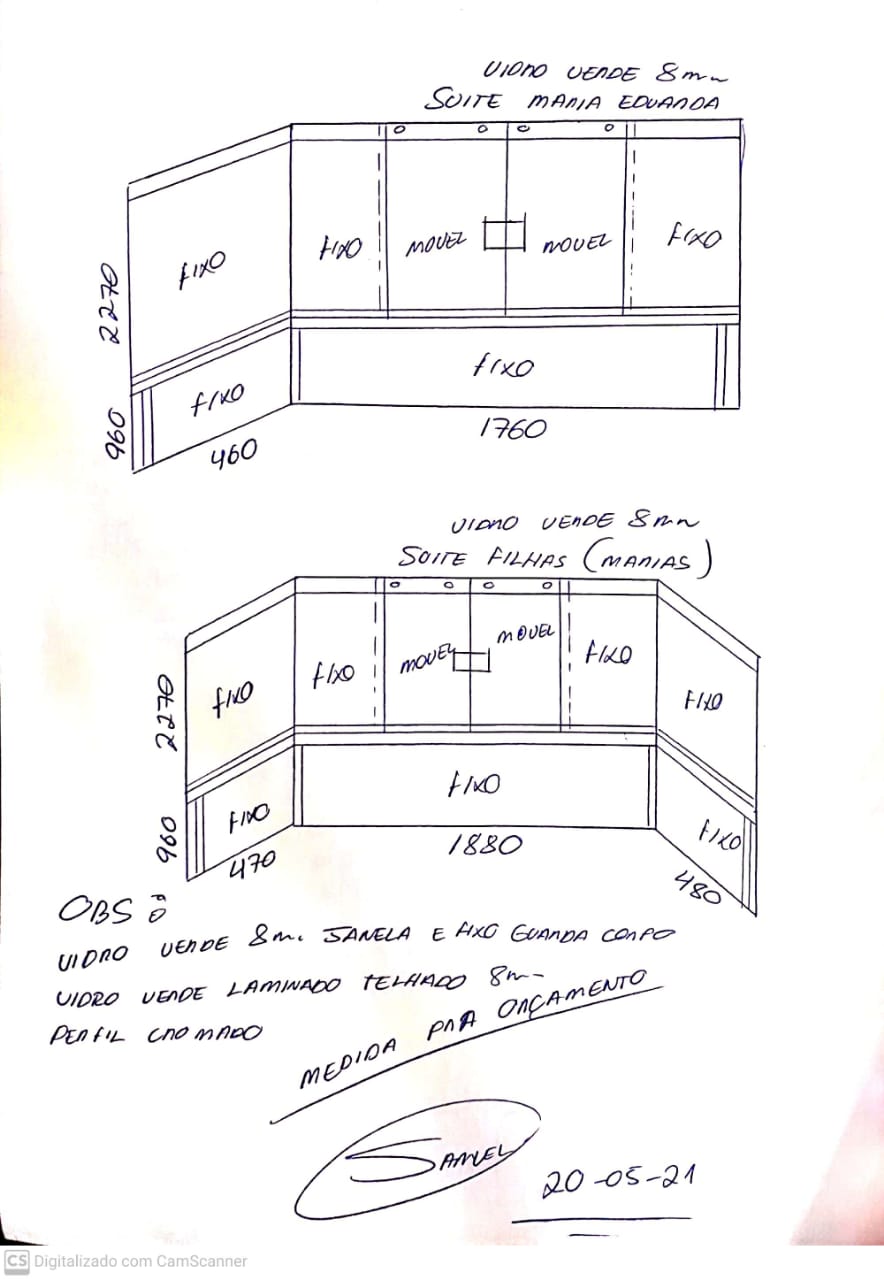 VIDRO VERDE 8mm
SUITE MARIA EDUARDA
FIXO
FIXO
MOVEL
MOVEL
FIXO
2270
FIXO
FIXO
960
460
1760
VIDRO VERDE 8mm
SUITE FILHAS (MARIAS)
FIXO
FIXO
MOVEL
MOVEL
FIXO
FIXO
2270
FIXO
FIXO
FIXO
960
470
1880
480
OBS:
VIDRO VERDE 8m. JANELA E FIXO GUARDA CORPO
VIDRO VERDE LAMINADO TELHADO 8m
PERFIL CROMADO
MEDIDA PRA ORÇAMENTO
SAMUEL
20-05-21
CS Digitalizado com CamScanner